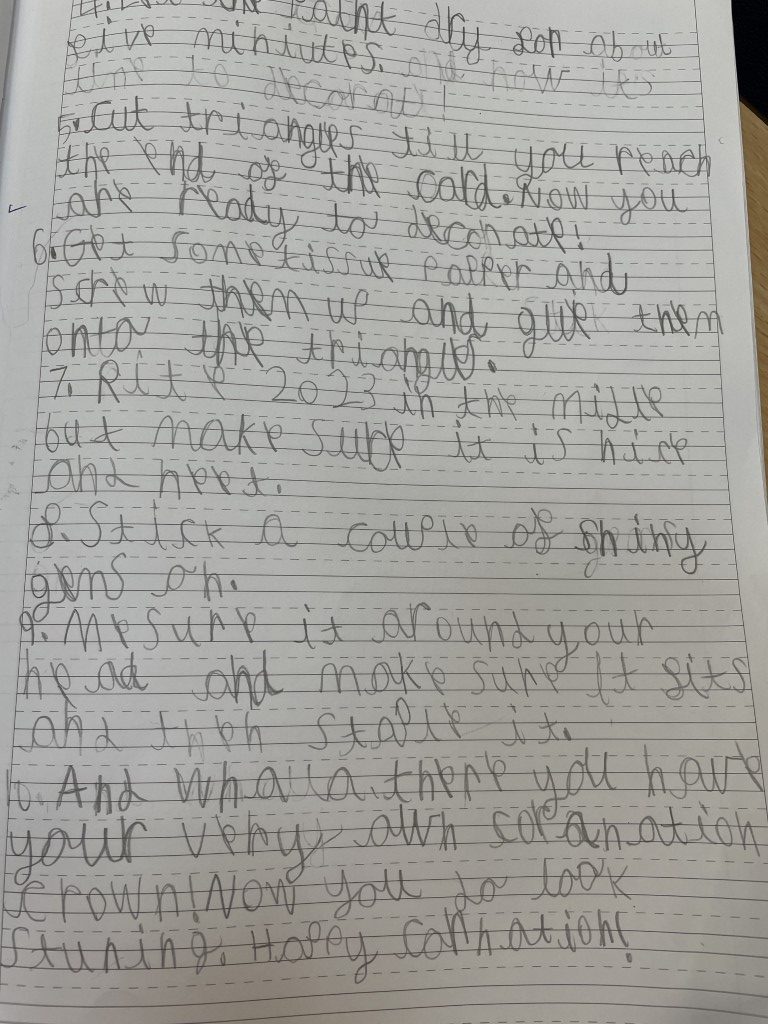 paint dry for about
five miniutes. and now it's
time to decorat!
5. Cut triangles till you reach
the end of the card. Now you
are ready to decorate!
6. Get some tissue papper and
screw them up and glue them
onto the triangles.
7. Rite 2023 in the midle
but make sure it is nice
and neet.
8. Stick a couple of shiny
gems on.
9. Mesure it around your
head and make sure it fits
and then staple it.
10. And whalla, there you have
your very own coranation
crown! Now you do look
stuning. Happy connation!